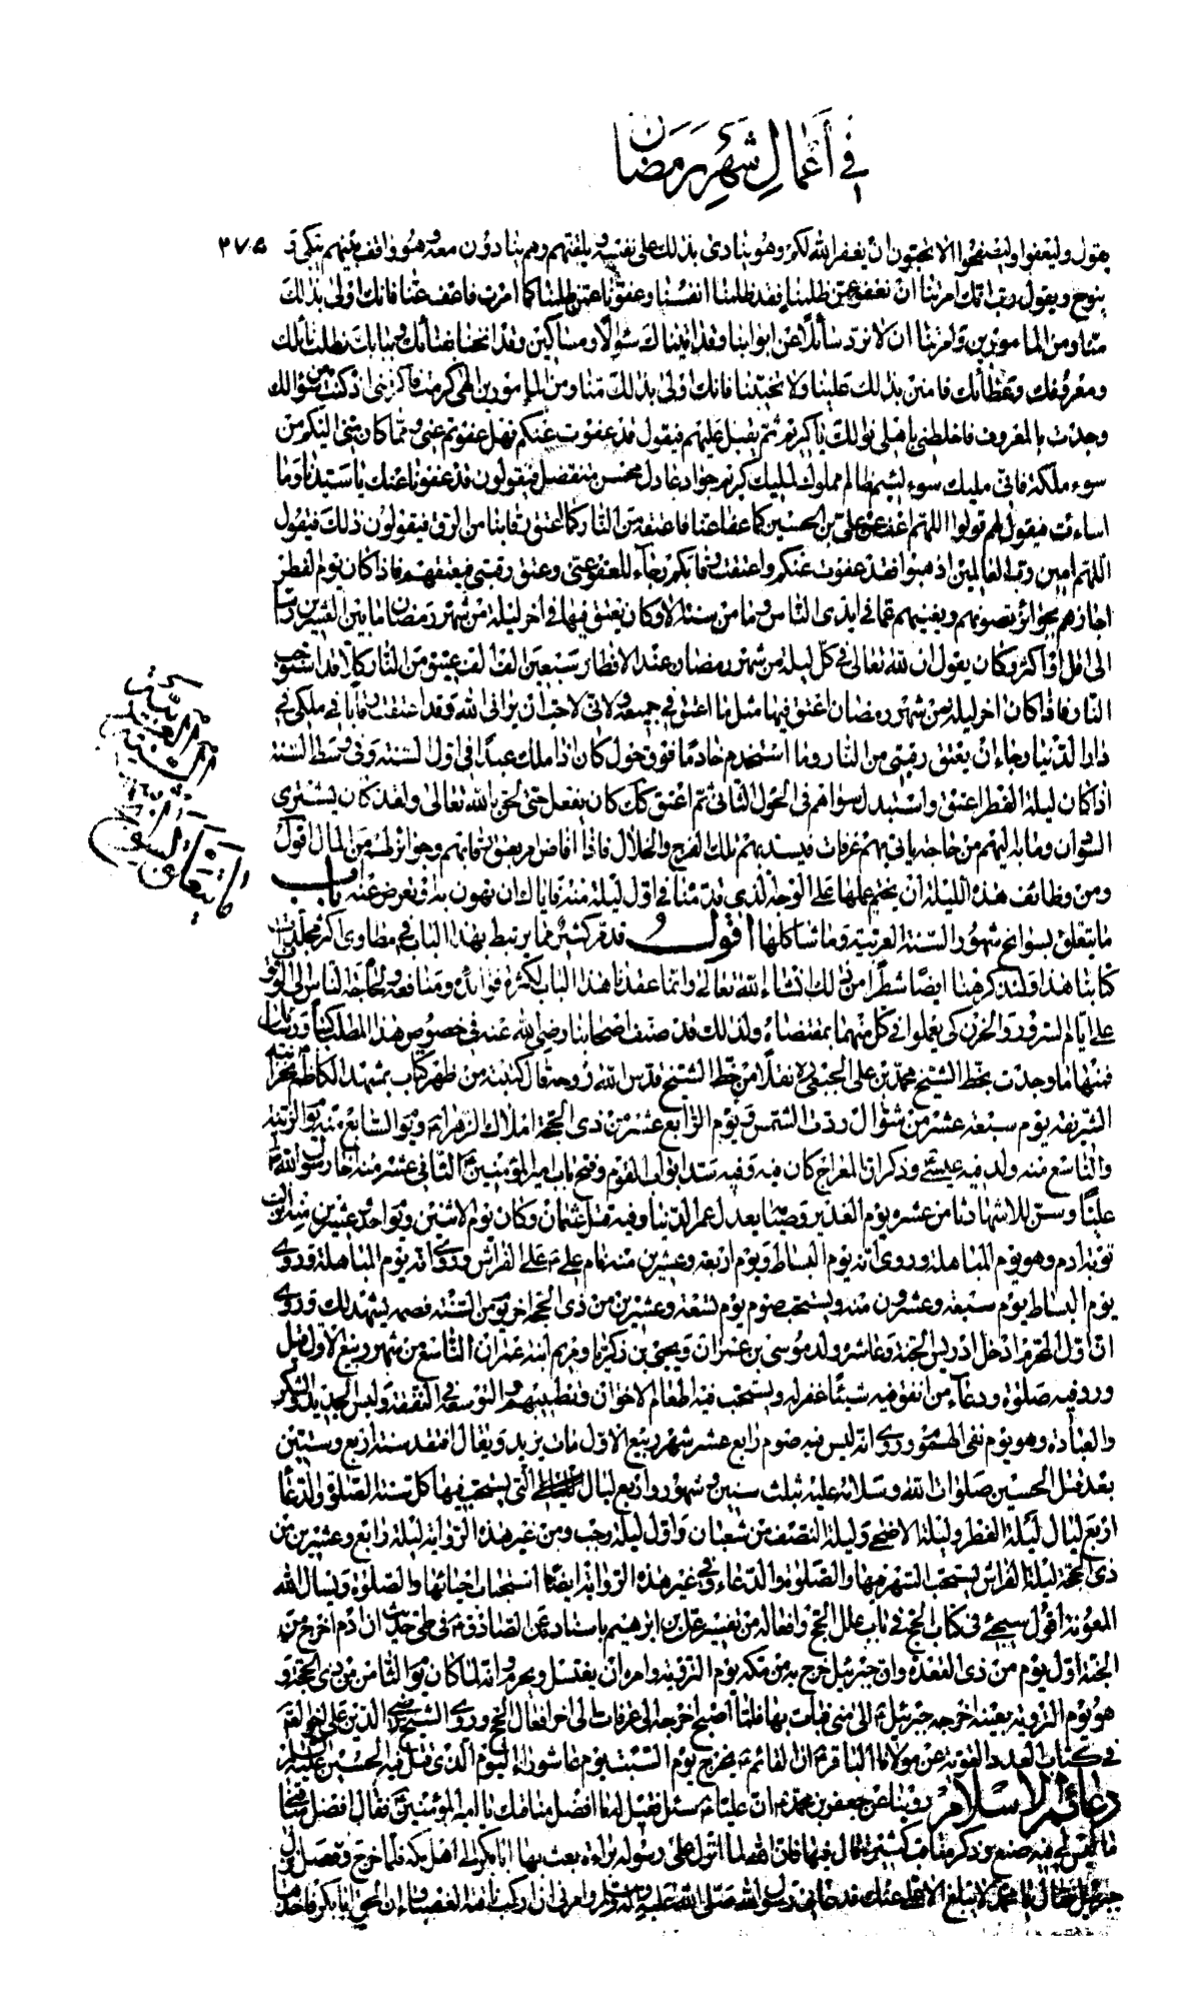 في أعمال شهر رمضان
٢٧٥
يقول وليعفوا وليصفحوا الا تحبون ان يغفر الله لكم وهو ينادى بذلك على نفسه ويلقنهم وهم ينادون معه وهو واقف بينهم يبكى و
ينوح ويقول رب انك امرتنا ان نعفو عمن ظلمنا فقد ظلمنا انفسنا وعفونا عمن ظلمنا كما امرت فاعف عنا فانك اولى بذلك
منا ومن المامورين وامرتنا ان لا نرد سائلا عن ابوابنا وقد اتيناك سؤالا ومساكين وقد انخنا بفنائك وببابك نطلب نائلك
ومعروفك وعطائك فامنن بذلك علينا ولا تخيبنا فانك اولى بذلك منا ومن المامورين الهى كرمت فاكرمنى اذ كنت من سؤالك
وجدت بالمعروف فاخلطنى باهل نوالك يا كريم ثم يقبل عليهم فيقول قد عفوت عنكم فهل عفوتم عنى ومما كان منى اليكم من
سوء ملكة فانى مليك سوء لئيم ظالم مملوك لمليك كريم جواد عادل محسن متفضل فيقولون قد عفونا عنك يا سيدنا وما
اسات فيقول لهم قولوا اللهم اعف عن على بن الحسين كما عفا عنا فاعتقه من النار كما اعتق رقابنا من الرق فيقولون ذلك فيقول
اللهم امين رب العالمين اذهبوا فقد عفوت عنكم واعتقت رقابكم رجاء للعفو عنى وعتق رقبتى فيعتقهم فاذا كان يوم الفطر
اجازهم بجوائز تصونهم وتغنيهم عما فى ايدى الناس وما من سنة الا وكان يعتق فيها فى اخر ليلة من شهر رمضان ما بين العشرين راسا
الى اقل او اكثر وكان يقول ان لله تعالى فى كل ليلة من شهر رمضان عند الافطار سبعين الف الف عتيق من النار كلا قد استوجب
النار فاذا كان اخر ليلة من شهر رمضان اعتق فيها مثل ما اعتق فى جميعه وانى لاحب ان يرانى الله وقد اعتقت رقابا فى ملكى فى
دار الدنيا رجاء ان يعتق رقبتى من النار وما استخدم خادما فوق حول كان اذا ملك عبدا فى اول السنة او فى وسط السنة
اذا كان ليلة الفطر اعتق واستبدل سواهم فى الحول الثانى ثم اعتق كذلك كان يفعل حتى لحق بالله تعالى ولقد كان يشترى
السودان وما به اليهم من حاجة ياتى بهم عرفات فيسد بهم تلك الفرج والخلال فاذا افاض امر بعتق رقابهم وجوائز لهم من المال اقول
ومن وظائف هذه الليلة ان يختم عملها على الوجه الذى قدمنا فى اول ليلة منه فاياك ان تهون به وتعرض عنه باب
ما يتعلق بسوانح شهور السنة العربية وما شاكلها اقول قد مر كثير مما يرتبط بهذا الباب فى مطاوى اكثر مجلدات
كتابنا هذا ولنذكر هنا ايضا شطرا من ذلك انشاء الله تعالى وانما عقدنا هذا الباب لكثرة فوائده ومنافعه ولحاجة الناس الى الوقوف
على ايام السرور والحزن كى يعملوا فى كل منهما بمقتضاه ولذلك قد صنف اصحابنا رضى الله عنهم فى خصوص هذا المطلب كتبا ورسائل
فمنها ما وجدت بخط الشيخ محمد بن على الجبعى ره نقلا من خط الشيخ قدس الله روحه قال كتبته من ظهر كتاب بمشهد الكاظم بخزانته
الشريفة يوم سبعة عشر من شوال ردت الشمس ويوم الرابع عشر من ذى الحجة املاك الزهراء ويوم السابع منه يوم الزينة
والتاسع منه ولد فيه عيسى وذكر ان المعراج كان فيه وفيه سد ابواب القوم وفتح باب امير المؤمنين الثانى عشر منه اخا رسول الله
عليا وسن الاشهاد ثامن عشره يوم الغدير وصيامه يعدل عمر الدنيا وفيه قتل عثمان وكان يوم الاثنين ويوم احد وعشرين منه انزلت
توبة ادم وهو يوم المباهلة وروى انه يوم البساط ويوم اربعة وعشرين منه نام على ع على الفراش وروى انه يوم المباهلة وروى
يوم البساط يوم سبعة وعشرون منه ويستحب صوم يوم تسعة وعشرين من ذى الحجة اخر يوم من السنة فصمه يشهد لك وروى
ان اول المحرم ادخل ادريس الجنة وعاشره ولد موسى بن عمران ويحيى بن زكريا ومريم ابنة عمران التاسع من شهر ربيع الاول
ورد فيه صلوة ودعاء من انفق فيه شيئا غفر له ويستحب فيه اطعام الاخوان وتطييبهم والتوسعة فى النفقة ولبس الجديد والشكر
والعبادة وهو يوم نفى الهموم وروى انه ليس فيه صوم رابع عشر شهر ربيع الاول مات يزيد ويقال افتقد سنة اربع وستين
بعد قتل الحسين صلوات الله وسلامه عليه ثلث سنين وشهور واربع ليال التى يستحب فيها كل سنة الصلوة والدعاء
اربع ليال ليلة الفطر وليلة الاضحى وليلة النصف من شعبان واول ليلة رجب ومن غير هذه الرواية ليلة رابع وعشرين من
ذى الحجة ليلة الفراش يستحب السهر فيها والصلوة والدعاء وفى غير هذه الرواية ايضا استحباب احيائها والصلوة ويسال الله
المعونة اقول سيجىء فى كتاب الحج فى باب علل الحج وافعاله من تفسير على بن ابرهيم باسناده عن الصادق ع فى طى حديث ان ادم اخرج من
الجنة اول يوم من ذى القعدة وان جبرئيل خرج به من مكة يوم التروية وامره ان يغتسل ويحرم وانه لما كان يوم الثامن من ذى الحجة و
هو يوم التروية بعينه اخرجه جبرئيل ع الى منى فبات بها فلما اصبح اخرجه الى عرفات الى اخر افعال الحج وروى الشيخ رضى الدين على اخو العلامة
فى كتاب العدد القوية عن مولانا الباقر ع ان القائم ع يخرج يوم السبت يوم عاشوراء اليوم الذى قتل فيه الحسين عليه السلام
دعائم الاسلام روينا عن جعفر بن محمد ع ان عليا ع سئل فقيل له ما افضل مناقبك يا امير المؤمنين فقال افضل مناقبى
ما ليس لى فيه صنع وذكر مناقب كثيرة قال فيها فان الله لما انزل على رسوله براءة بعث بها ابا بكر الى اهل مكة فلما خرج وفصل نزل
جبرئيل فقال يا محمد لا يبلغ الا على عنك فدعانى رسول الله صلى الله عليه واله وامرنى ان اركب ناقته العضباء وان الحق ابا بكر فاخذ
باب
ما يتعلق